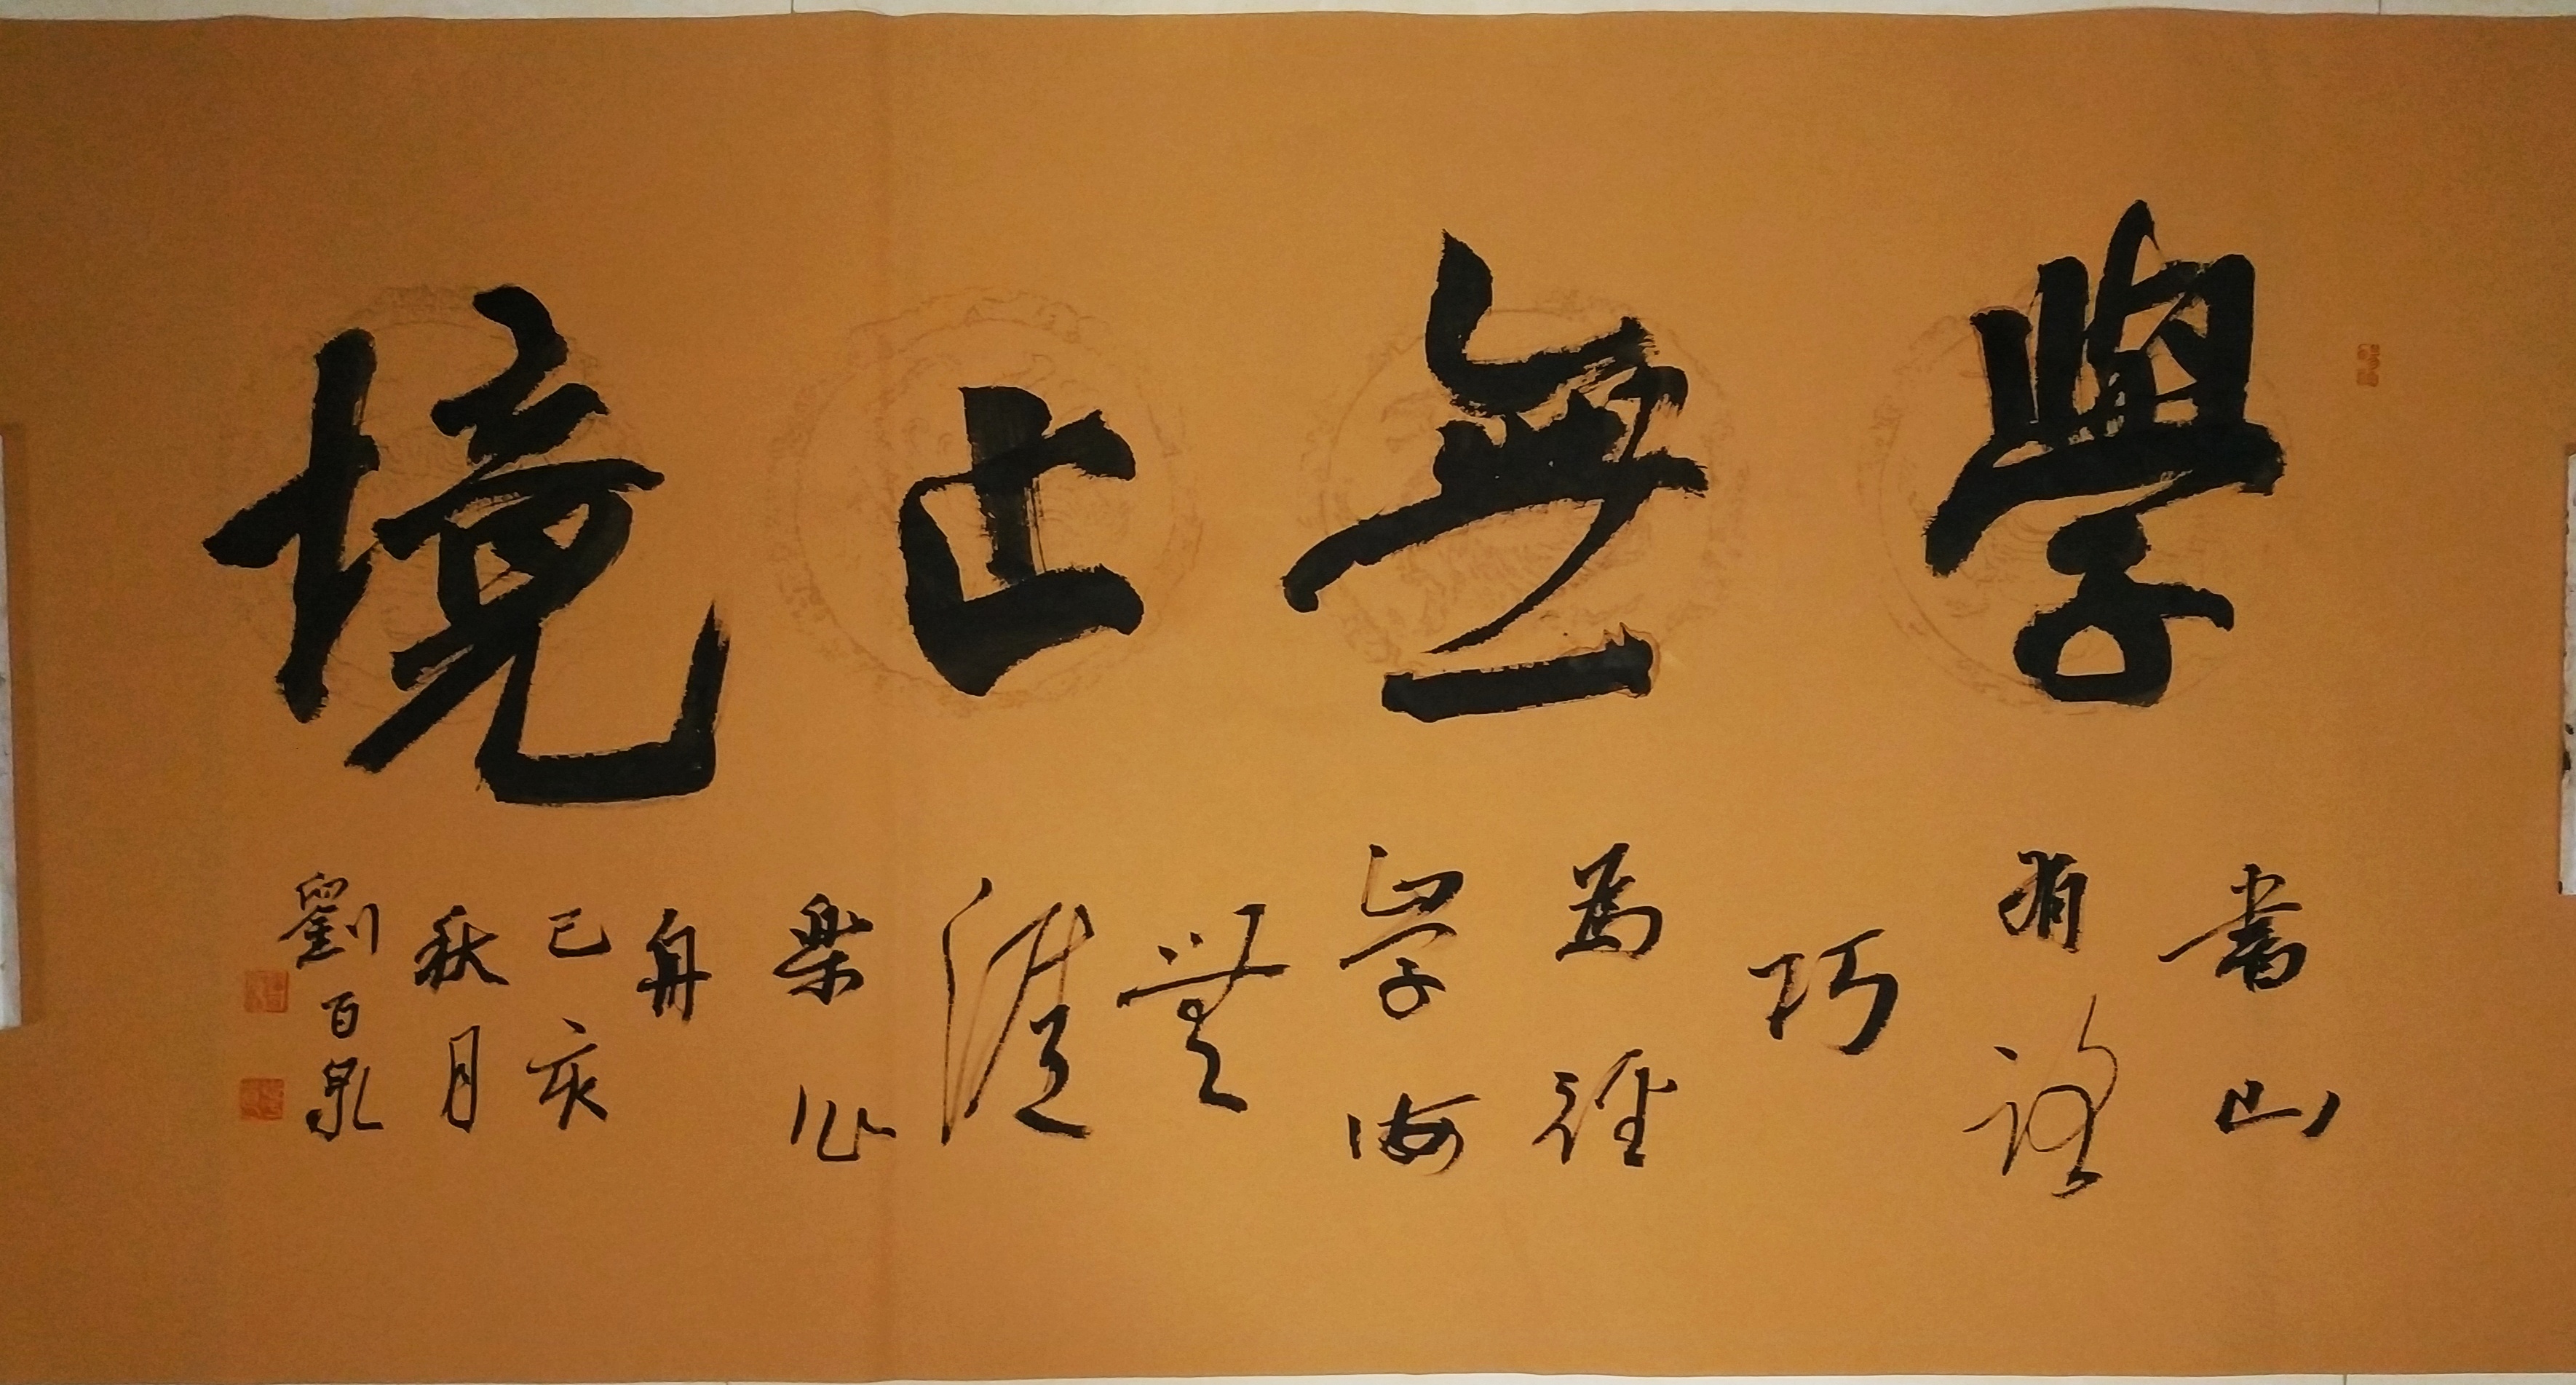 學無止境
書山
有路
巧
為徑
學海
無
涯
樂
舟
己亥
秋月
劉百泉